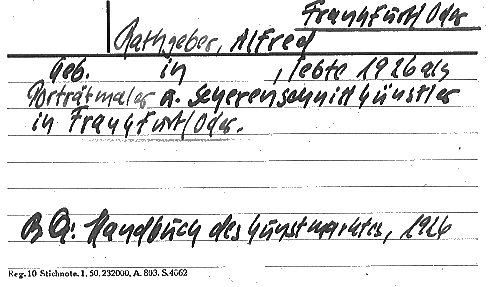 Frankfurt/Oder
Rathgeber, Alfred
Geb. in , lebte 1926 als
Porträtmaler u. Scherenschnittkünstler
in Frankfurt/Oder.
BQ: Handbuch des Kunstmarktes, 1926
Reg. 10 Stichnote. 1, 50, 232000, A. 803. S. 4662